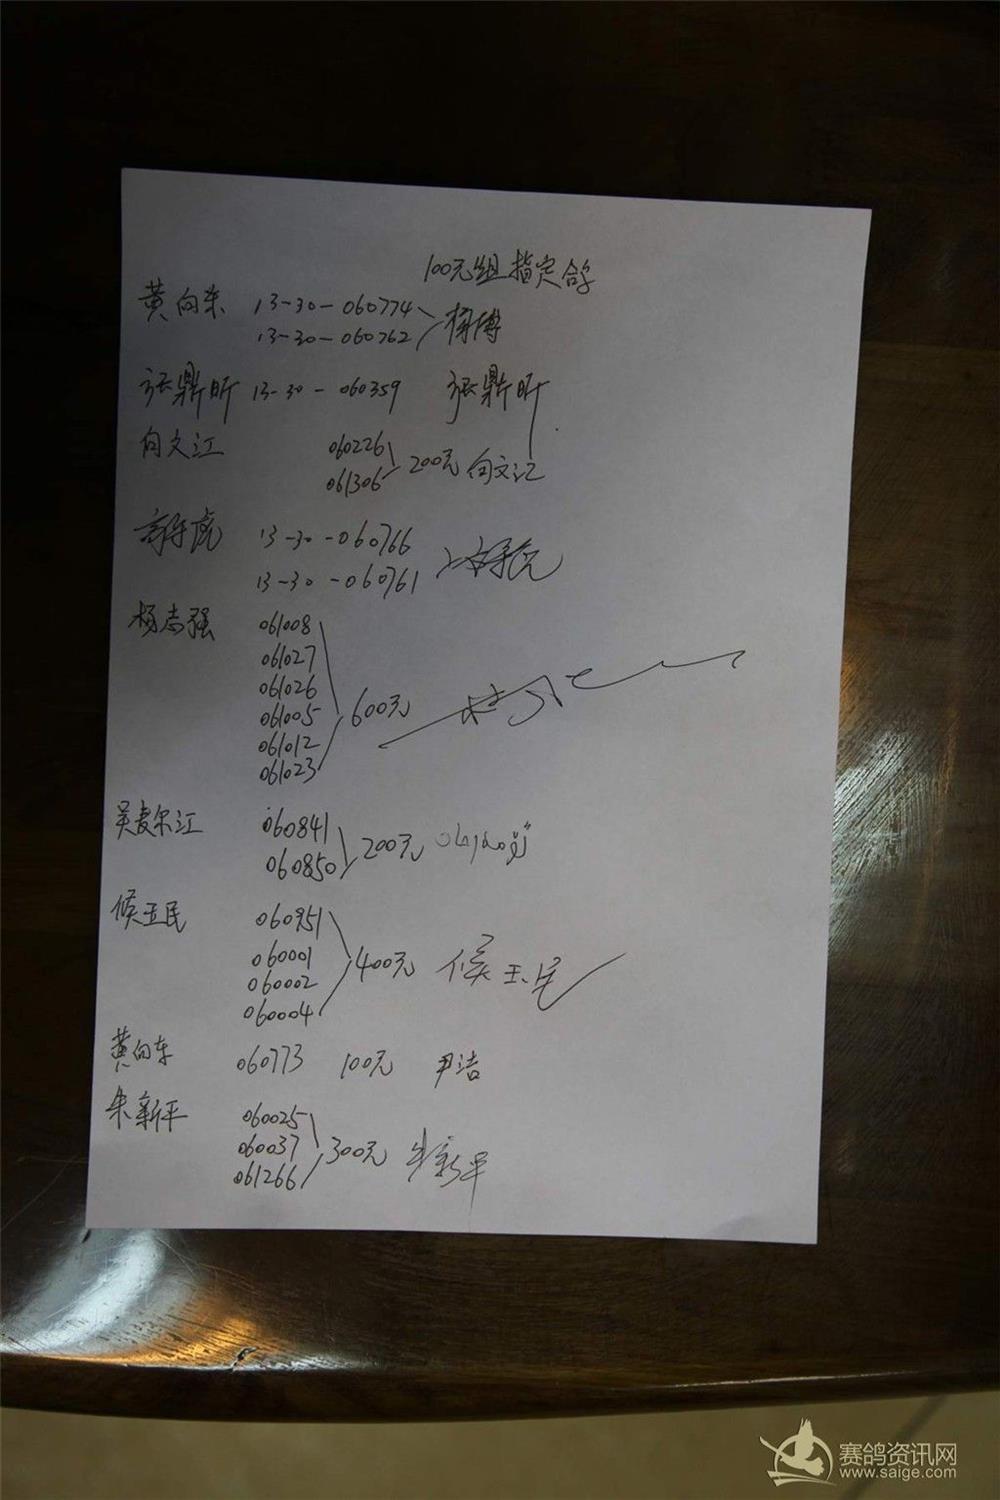 100元组指定鸽
黄向东 13-30-060774 杨博
13-30-060762
张鼎昕 13-30-060359 张鼎昕
向文江 060226 200元 向文江
061306
13-30-060766
13-30-060761
杨志强 061008
061027
061026
061005 600元
061012
061023
吴麦尔江 060841
060850 200元
侯玉民 060951
060001 400元 侯玉民
060002
060004
黄向东 060773 100元 尹洁
朱新平 060025
060037 300元 朱新平
061266
赛鸽资讯网
www.saige.com